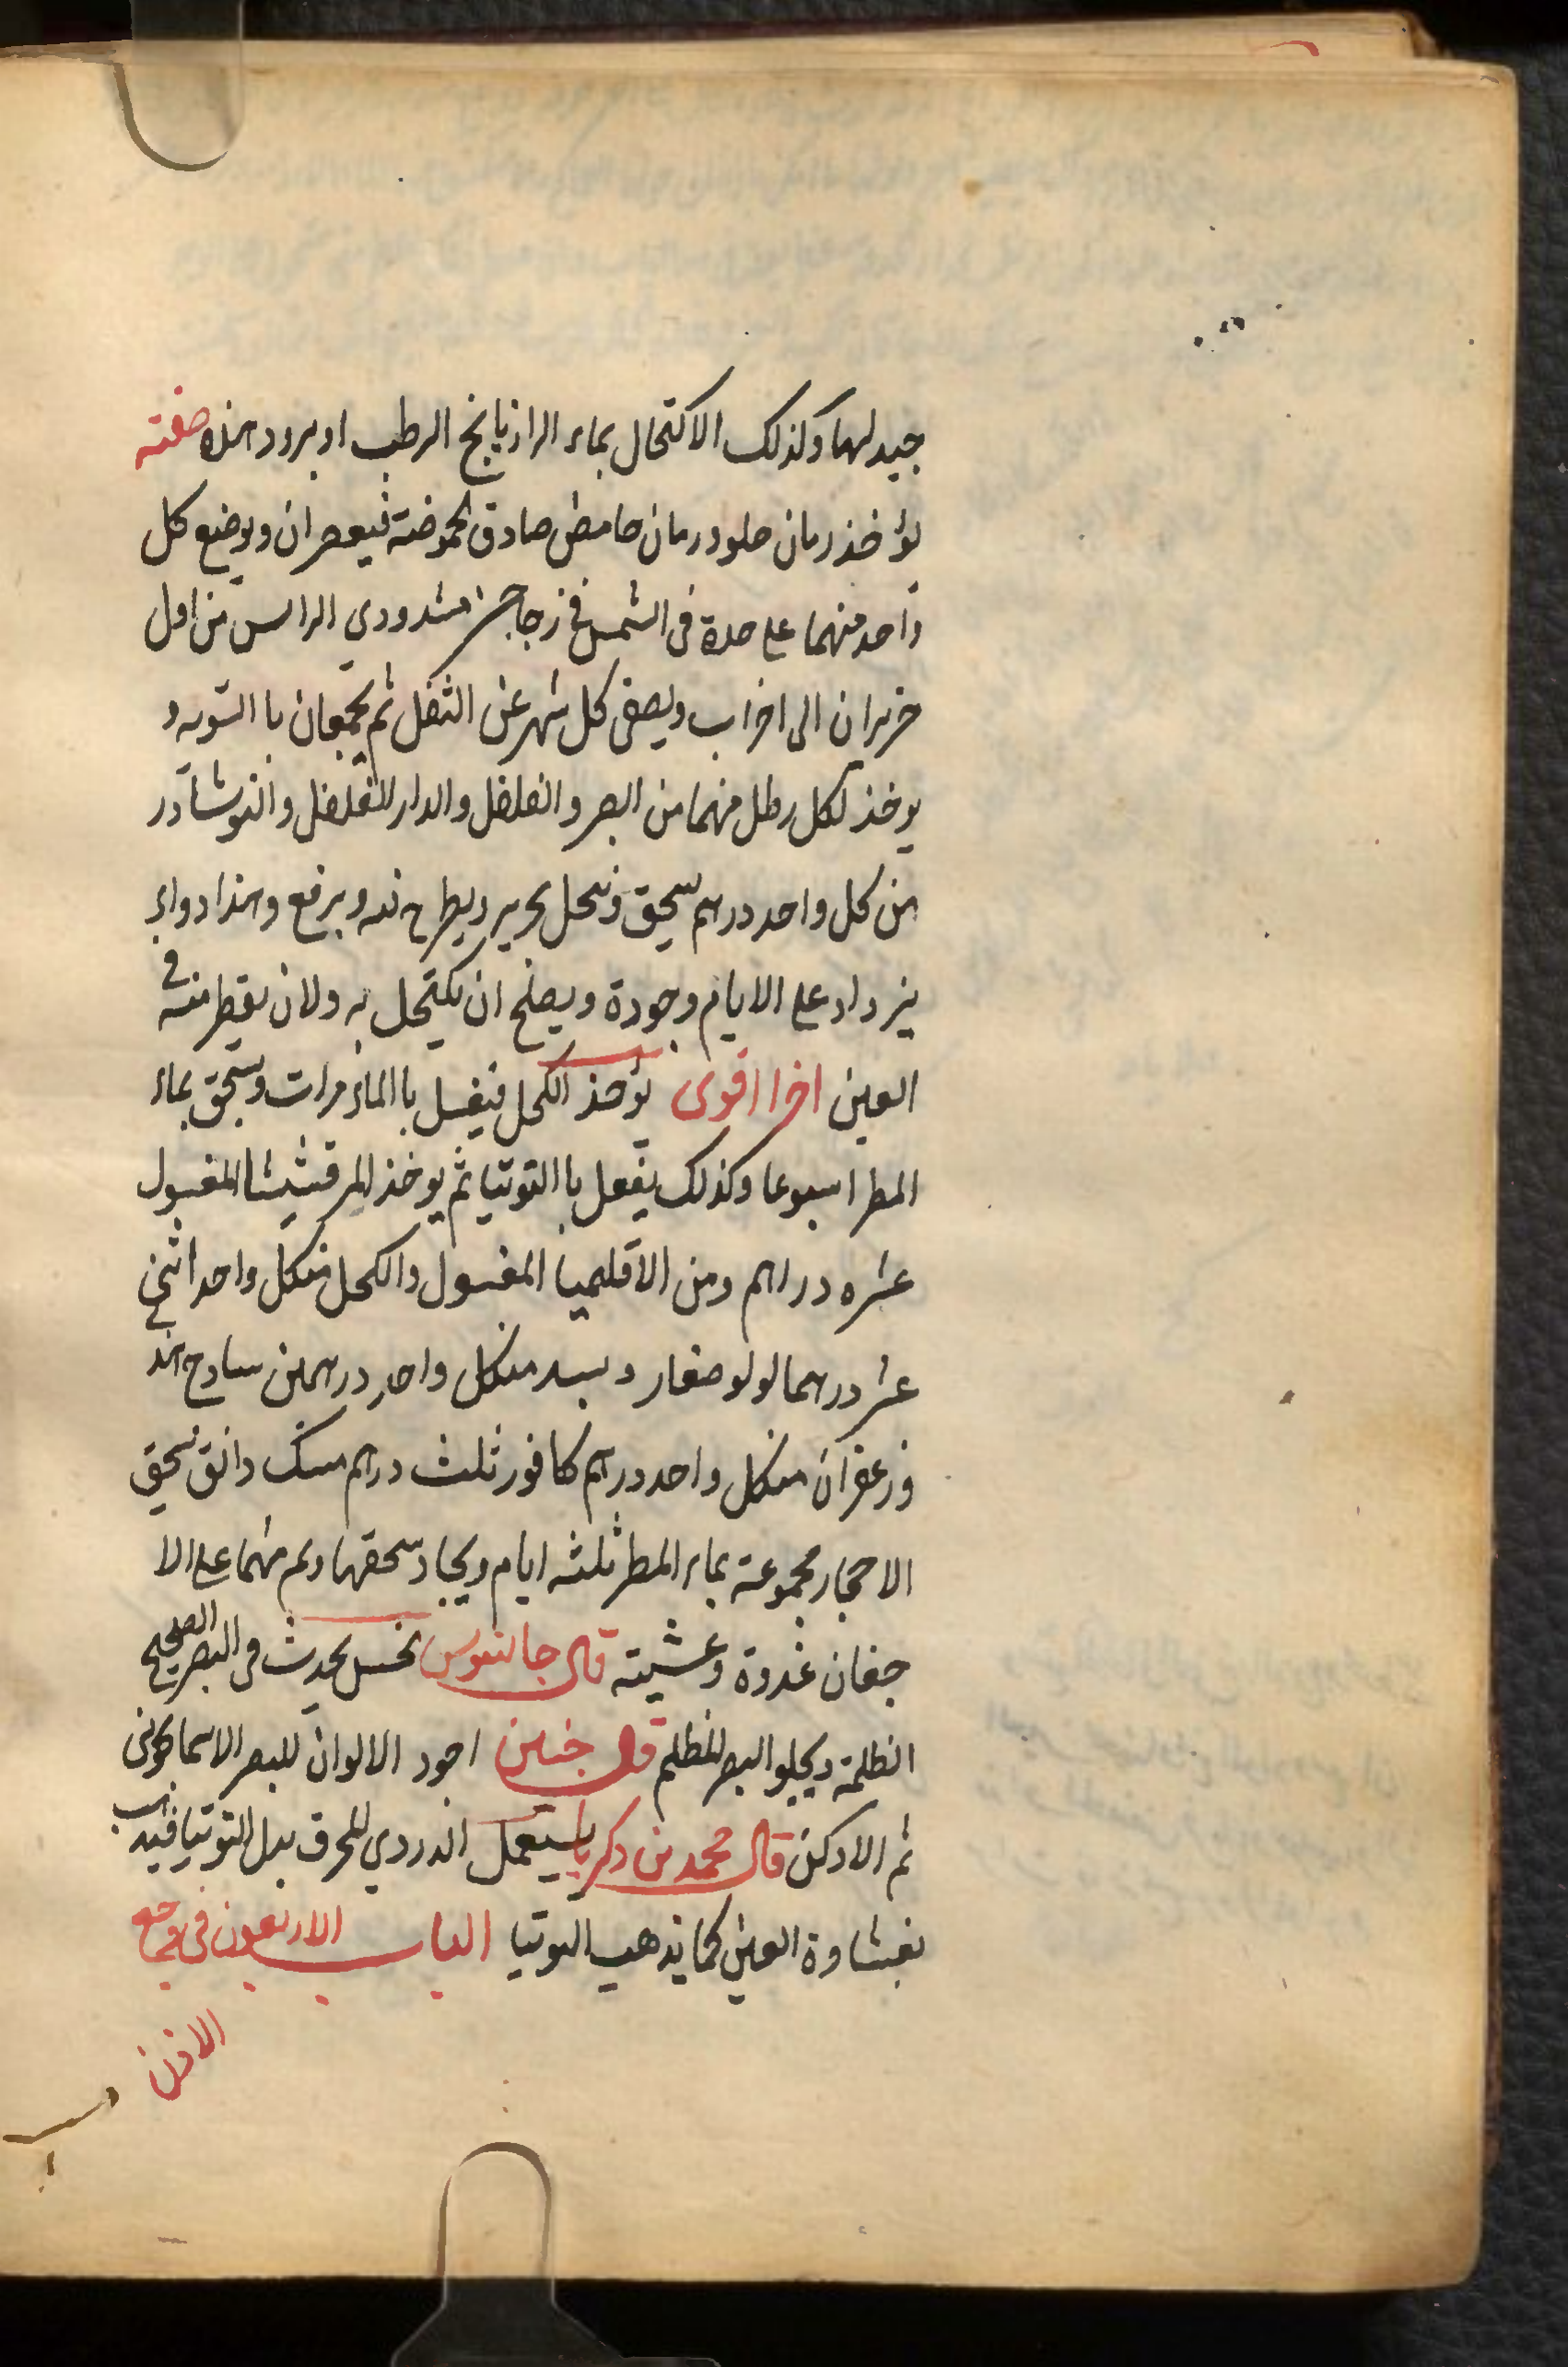 جيد لهما وكذلك الاكتحال بماء الرازيانج الرطب او برود هذه صفته
يؤخذ رمان حلو ورمان حامض صادق الحموضة فيعصران ويوضع كل
واحد منهما على حدة فى الشمس فى زجاجتين مشدودي الراس من اول
حزيران الى اخر اب ويصفى كل شهر عن الثفل ثم يجمعان با السويه و
يوخذ لكل رطل منهما من الصبر والفلفل والدار الفلفل والنوشادر
من كل واحد درهم يسحق وينخل بحرير ويطرح فيه ويرفع وهذا دواء
يزداد على الايام وجودة ويصلح ان يكتحل به ولان يقطر منه فى
العين اخرا اقوى يؤخذ الكحل فيغسل با الماء مرات ويسحق بماء
المطر اسبوعا وكذلك يفعل با التوتيا ثم يوخذ المرقشيشا المغسول
عشره دراهم ومن الاقليميا المغسول والكحل منكل واحد اثنى
عشر درهما لولو صغار وبسد منكل واحد درهمين سادج هند
وزعفران منكل واحد درهم كافور ثلث درهم مسك دانق يسحق
الاحجار مجموعة بماء المطر ثلثه ايام ويجاد سحقها ولم منهما على الا
جفان غدوة وعشية قال جالنوس نحس يحدث فى البصر الصحيح
الظلمة ويجلوا البصر المظلم قال حنين اجود الالوان للبصر الاسماكونى
ثم الادكن قال محمد بن ذكريا يستعمل الدردي المحرق بدل التوتيا فيذهب
بغشاوة العين كما يذهب التوتيا الباب الاربعون فى وجع
الاذن